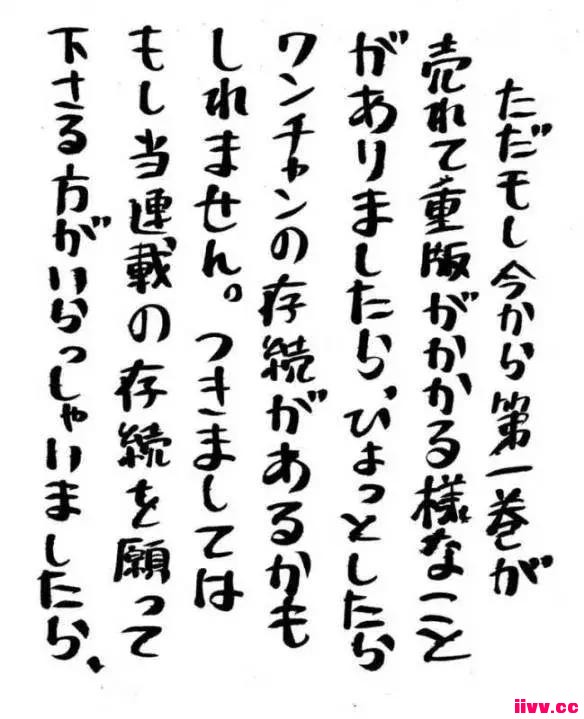 ただもし今から第一巻が
売れて重版がかかる様なこと
がありましたら、ひょっとしたら
ワンチャンの存続があるかも
しれません。つきましては
もし当連載の存続を願って
下さる方がいらっしゃいましたら、
iivv.cc